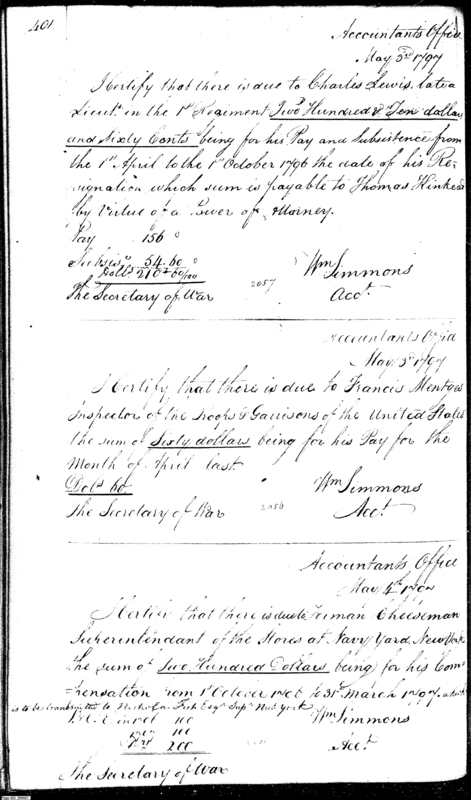 401
Accountants Office
May 3d 1797
I Certify that there is due to Charles Lewis, late a
Lieut. in the 1st Regiment Two Hundred & Ten dollars
and Sixty Cents being for his Pay and Subsistence from
the 1st April to the 1st October 1796 the date of his Re-
signation which sum is payable to Thomas Hinkead
by Virtue of a Power of Attorney.
Pay 156
Subsis. 54.60
Dolls 210 60/100
2057
Wm Simmons
Acct.
The Secretary of War
Accountants Office
May 3d 1797
I Certify that there is due to Francis Mentges
Inspector of the Troops & Garrisons of the United States
the sum of Sixty dollars being for his Pay for the
Month of April last
Dols 60
Wm Simmons
The Secretary of War
2056
Acct.
Accountants Office
May 4th 1797
I Certify that there is due to Forman Cheeseman
Superintendant of the Stores at Navy Yard, New York
the sum of Two Hundred Dollars being for his Com
-pensation from 1st October 1796 to 31st March 1797 which
is to be transmitted to Nicholas Fish Esqr Supr New York
100
Wm Simmons
100
200
Acct.
The Secretary of War